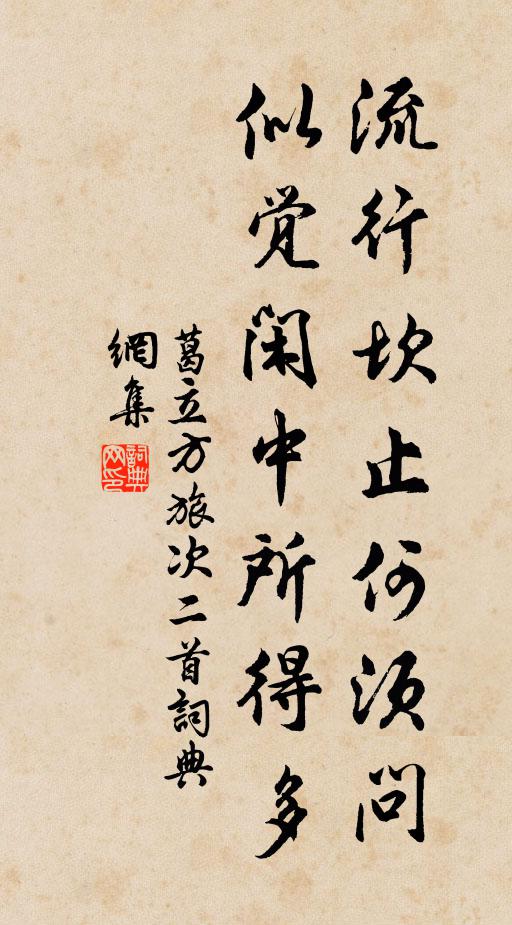 流行坎止何须问
似觉闲中所得多
葛立方旅次二首詞典
網集
詞典网印